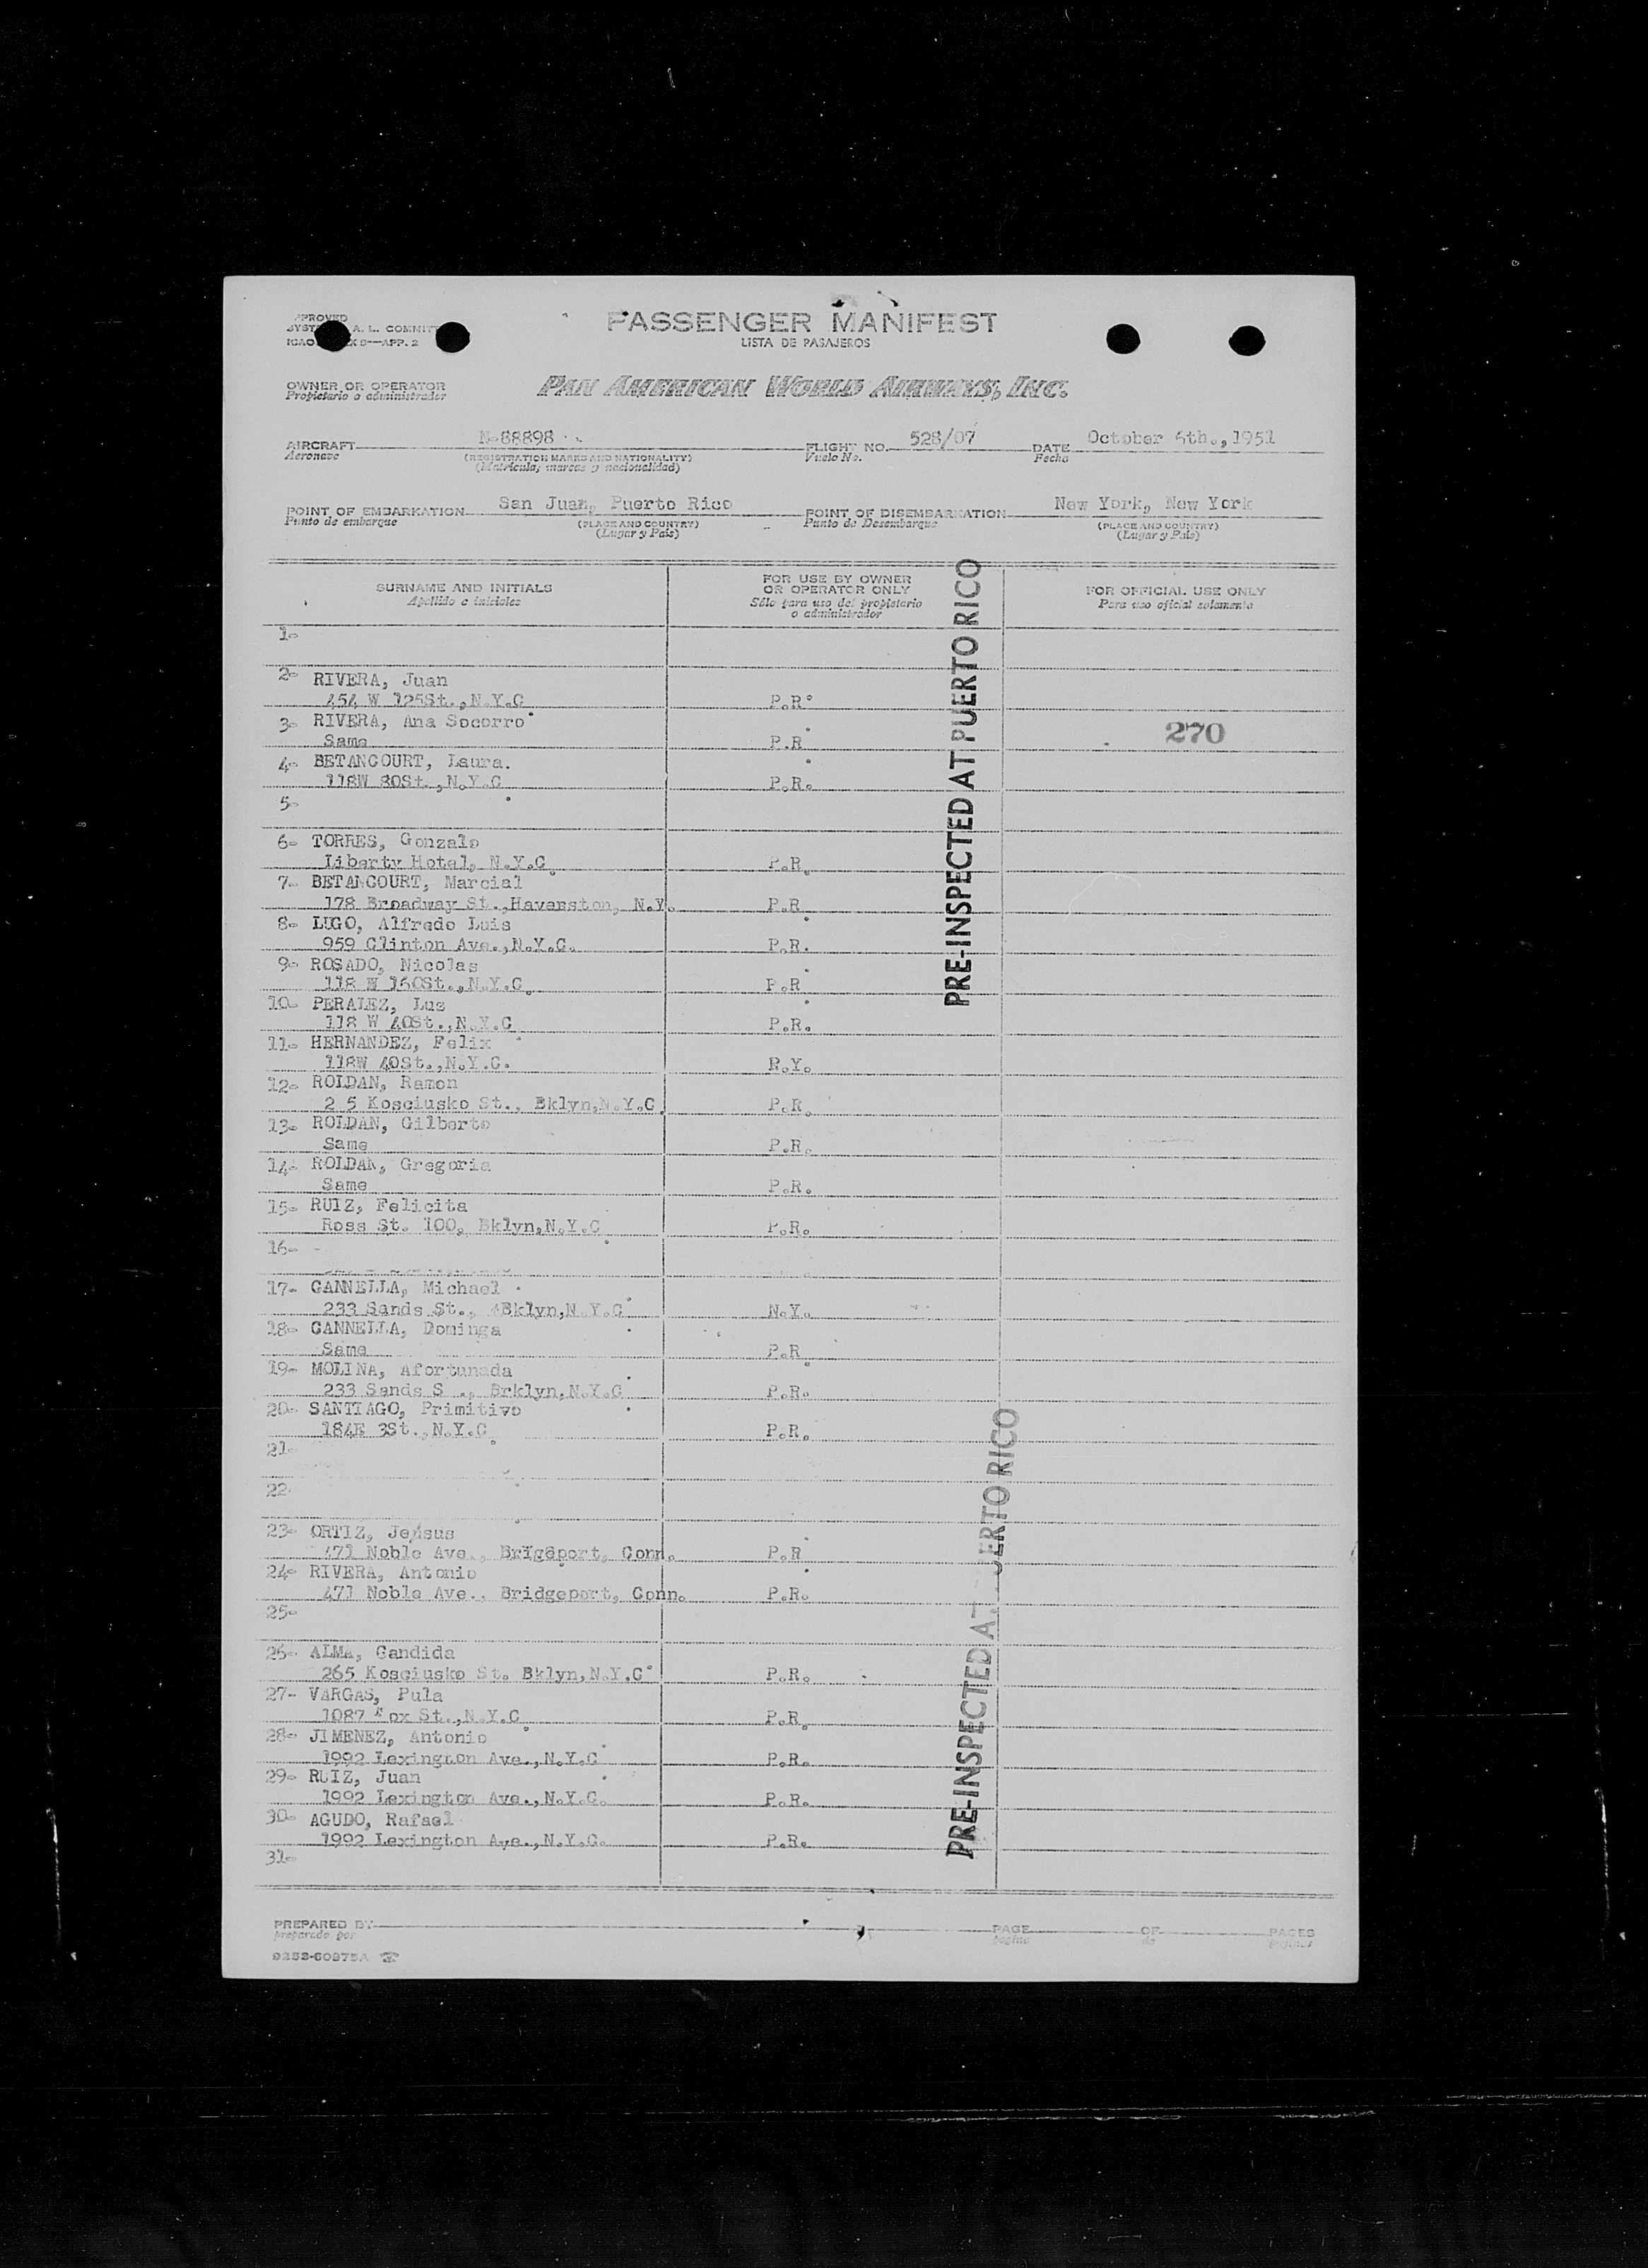 PASSENGER MANIFEST
LISTA DE PASAJEROS
APP. 2
OWNER OR OPERATOR
Propietario o administrador
PAN AMERICAN WORLD AIRWAYS, INC.
AIRCRAFT N-88898 FLIGHT NO. 528/07 DATE October 6th., 1951
Aeronave (REGISTRATION MARKS AND NATIONALITY) Vuelo No. Fecha
(Matricula, marcas y nacionalidad)
POINT OF EMBARKATION San Juan, Puerto Rico POINT OF DISEMBARKATION New York, New York
Punto de embarque (PLACE AND COUNTRY) Punto de Desembarque (PLACE AND COUNTRY)
(Lugar y Pais) (Lugar y Pais)
SURNAME AND INITIALS FOR USE BY OWNER OR OPERATOR ONLY FOR OFFICIAL USE ONLY
Apellido e iniciales Sólo para uso del propietario o administrador Para uso oficial solamente
1-
2- RIVERA, Juan
454 W 125St.,N.Y.C P.R.
3- RIVERA, Ana Socorro 270
Same P.R
4- BETANCOURT, Laura.
118W 80St.,N.Y.C P.R.
5-
6- TORRES, Gonzalo
Liberty Hotel, N.Y.C P.R.
7- BETANCOURT, Marcial
178 Broadway St.,Haverston, N.Y. P.R
8- LUGO, Alfredo Luis
959 Clinton Ave.,N.Y.C. P.R.
9- ROSADO, Nicolas
118 W 160St.,N.Y.C. P.R
10- PERALEZ, Luz
118 W 40St.,N.Y.C P.R.
11- HERNANDEZ, Felix
118W 40St.,N.Y.C. N.Y.
12- ROLDAN, Ramon
2 5 Kosciusko St., Bklyn,N.Y.C. P.R.
13- ROLDAN, Gilberto
Same P.R.
14- ROLDAN, Gregoria
Same P.R.
15- RUIZ, Felicita
Ross St. 100, Bklyn,N.Y.C P.R.
16-
17- CANNELLA, Michael
233 Sands St., Bklyn,N.Y.C N.Y.
18- CANNELLA, Dominga
Same P.R
19- MOLINA, Afortunada
233 Sands S ., Brklyn,N.Y.C P.R.
20- SANTIAGO, Primitivo
184E 3St.,N.Y.C P.R.
21-
22-
23- ORTIZ, Jesus
471 Noble Ave., Brigeport, Conn. P.R
24- RIVERA, Antonio
471 Noble Ave., Bridgeport, Conn. P.R.
25-
26- ALMA, Candida
265 Kosciusko St. Bklyn,N.Y.C P.R.
27- VARGAS, Pula
1087 Fox St.,N.Y.C P.R.
28- JIMENEZ, Antonio
1992 Lexington Ave.,N.Y.C P.R.
29- RUIZ, Juan
1992 Lexington Ave.,N.Y.C. P.R.
30- AGUDO, Rafael
1992 Lexington Ave.,N.Y.C. P.R.
31-
PRE-INSPECTED AT PUERTO RICO
PRE-INSPECTED AT ERTO RICO
PREPARED BY PAGE OF PAGES
preparado por pagina de paginas
9252-60375A